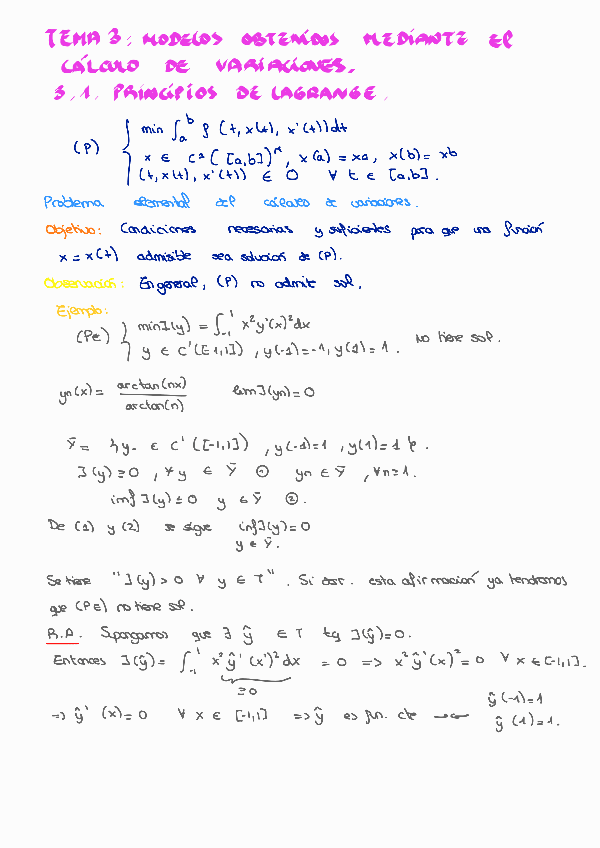 TEMA 3: MODELOS OBTENIDOS MEDIANTE El
CÁLCULO DE VARIACIONES.
3.1. PRINCIPIOS DE LAGRANGE.
(P) { min ∫_a^b f (t, x(t), x'(t))dt
x ∈ C²([a,b])^n, x(a) = xa, x(b) = xb
(t, x(t), x'(t)) ∈ O ∀ t ∈ [a,b].
Problema elemental del cálculo de variaciones.
Objetivo: Condiciones necesarias y suficientes para que una función
x = x(t) admisible sea solución de (P).
Observación: En general, (P) no admite sol.
Ejemplo:
(Pe) { min J(y) = ∫_-1^1 x²y'(x)²dx
y ∈ C'([-1,1]), y(-1)=-1, y(1)=1. No tiene sol.
yn(x) = arctan(nx) / arctan(n) lim J(yn)=0
Ȳ = {y. ∈ C'([-1,1]), y(-1)=1, y(1)=1}.
J(y) ≥ 0, ∀ y ∈ Ȳ ① yn ∈ Ȳ, ∀n≥1.
inf J(y) ≤ 0 y ∈ Ȳ ②.
De (1) y (2) se sigue inf J(y)=0
y ∈ Ȳ.
Se tiene "J(y) > 0 ∀ y ∈ T". Si esta afirmación ya tendremos
que (Pe) no tiene sol.
R.A. Supongamos que ∃ ŷ ∈ T tq J(ŷ)=0.
Entonces J(ŷ) = ∫_-1^1 x²ŷ'(x')²dx = 0 => x²ŷ'(x)²=0 ∀ x ∈ [-1,1].
≥0
=> ŷ'(x)=0 ∀ x ∈ [-1,1] => ŷ es fun. cte →← ŷ(-1)=1
ŷ(1)=1.